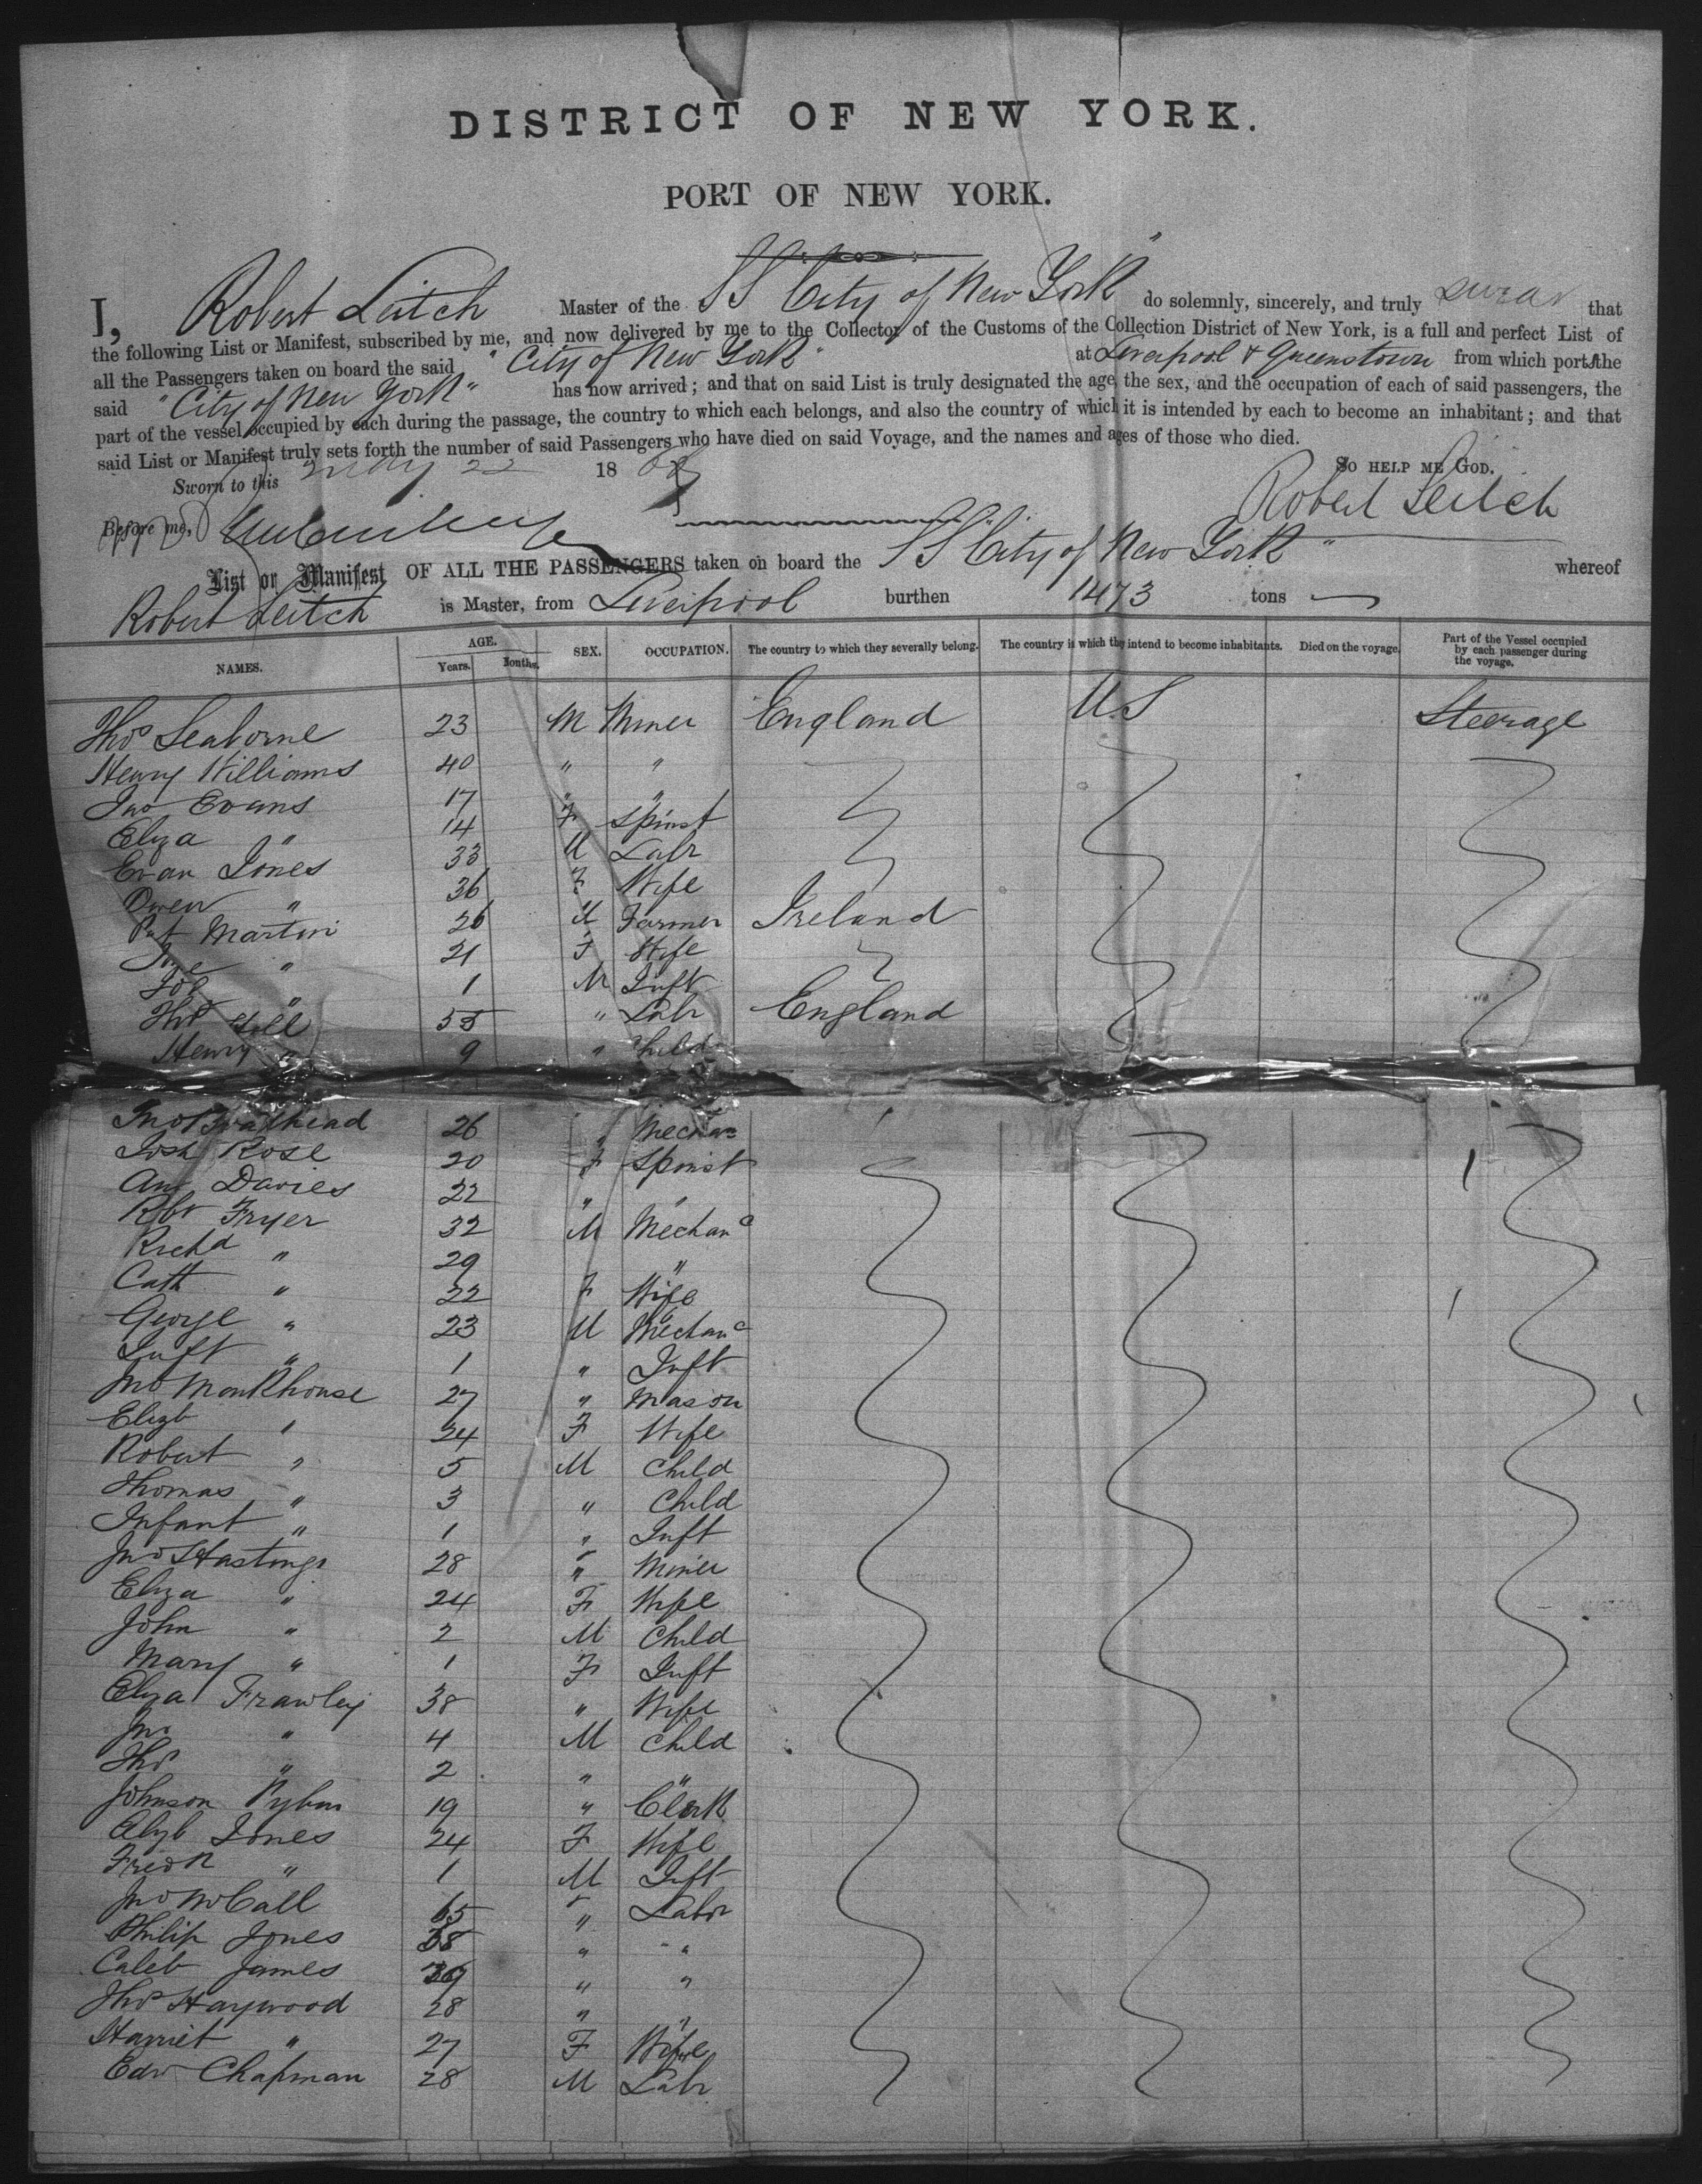 DISTRICT OF NEW YORK.
PORT OF NEW YORK.
I, Robert Leitch Master of the SS City of New York" do solemnly, sincerely, and truly swear that
the following List or Manifest, subscribed by me, and now delivered by me to the Collector of the Customs of the Collection District of New York, is a full and perfect List of
all the Passengers taken on board the said "City of New York" at Liverpool & Queenstown from which ports the
said "City of New York" has now arrived; and that on said List is truly designated the age, the sex, and the occupation of each of said passengers, the
part of the vessel occupied by each during the passage, the country to which each belongs, and also the country of which it is intended by each to become an inhabitant; and that
said List or Manifest truly sets forth the number of said Passengers who have died on said Voyage, and the names and ages of those who died.
So help me God.
Sworn to this 22 18
Robert Leitch
Before me,
List or Manifest OF ALL THE PASSENGERS taken on board the SS "City of New York" whereof
Robert Leitch is Master, from Liverpool burthen 1473 tons
NAMES. AGE. Years. Months. SEX. OCCUPATION. The country to which they severally belong. The country in which they intend to become inhabitants. Died on the voyage. Part of the Vessel occupied by each passenger during the voyage.
Thos Seaborne 23 M Miner England U.S Steerage
Henry Williams 40 " "
Jno Evans 17 " "
Eliza " 14 F Spinst
Evan Jones 33 M Labr
Owen " 36 F Wife
Pat Martin 26 M Farmer Ireland
" 21 F Wife
" 1 M Inft
Thos Gill 55 " Labr England
Henry " 9 " Child
Jno Broadhead 26 " Mechan
Josh Rose 20 F Spinst
Ann Davies 22 " "
Robt Fryer 32 M Mechanc
Richd " 29 "
Cath " 22 F Wife
George " 23 M Mechanc
Inft " 1 " Inft
Jno Monkhouse 27 " Mason
Elizb " 24 F Wife
Robert " 5 M Child
Thomas " 3 " Child
Infant " 1 " Inft
Jno Hastings 28 " Miner
Eliza " 24 F Wife
John " 2 M Child
Mary " 1 F Inft
Eliza Frawley 38 " Wife
Jno " 4 M Child
Thos " 2 " "
Johnson Pybus 19 " Clerk
Elizb Jones 24 F Wife
Fredk " 1 M Inft
Jno McCall 65 " Labor
Philip Jones 38 " "
Caleb James " "
Thos Haywood 28 " "
Harriet " 27 F Wife
Edw Chapman 28 M Labr